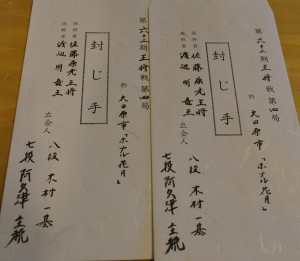 第六十二期王将戦第四局
於 大田原市「ホテル花月」
封じ手
保持者 佐藤康光王将
挑戦者 渡辺 明 竜王
立会人
八段 木村一基
七段 阿久津主税
第六十二期王将戦第四局
於 大田原市「ホテル花月」
封じ手
保持者 佐藤康光王将
挑戦者 渡辺 明 竜王
立会人
八段 木村一基
七段 阿久津主税